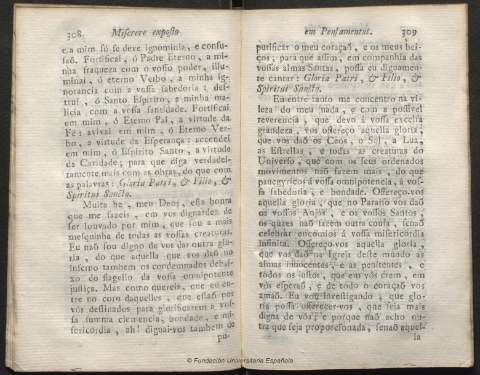 308. Miserere exposto
e a mim só se deve ignominia, e confu-
saõ. Fortificai, ó Padre Eterno, a mi-
nha fraqueza com o vosso poder, illu-
minai, ó eterno Verbo, a minha ig-
norancia com a vossa sabedoria; des-
trui, ó Santo Espirito, a minha ma-
licia com a vossa santidade. Fortificai
em mim, ó Eterno Pai, a virtude da
Fé: avivai em mim, ó Eterno Ver-
bo, a virtude da Esperança: accendei
em mim, ó Espirito Santo, a virtude
da Caridade; para que diga verdadei-
ramente mais com as obras, do que com
as palavras: Gloria Patri, & Filio, &
Spiritui Sancto.
Muita he, meu Deos, esta honra
que me fazeis, em vos dignardes de
ser louvado por mim, que sou a mais
mesquinha de todas as vossas creaturas.
Eu naõ sou digno de vos dar outra glo-
ria, do que aquella que vos daõ no
inferno tambem os condemnados debai-
xo do flagello da vossa omnipotente
justiça. Mas como quereis, que eu en-
tre no coro daquelles, que estaõ por
vós destinados para glorificarem a vos-
sa summa clemencia, bondade, e mi-
sericordia, ah! dignai-vos tambem de
pu-
em Pensamentos. 309
purificar o meu coraçaõ, e os meus bei-
ços; para que assim, em companhia das
vossas almas Santas, possa eu dignamen-
te cantar: Gloria Patri, & Filio, &
Spiritui Sancto.
Eu entre tanto me concentro na vi-
leza do meu nada, e com a possivel
reverencia, que devo á vossa excelsa
grandeza, vos offereço aquella gloria,
que vos daõ os Ceos, o Sol, a Lua,
as Estrellas, e todas as creaturas do
Universo, que com os seus ordenados
movimentos naõ fazem mais, do que
panegyricos á vossa omnipotencia, á vos-
sa sabedoria, e bondade. Offereço-vos
aquella gloria, que no Paraiso vos daõ
os vossos Anjos, e os vossos Santos,
os quaes naõ fazem outra cousa, senaõ
celebrar encomios á vossa misericordia
infinita. Offereço-vos aquella gloria,
que vos daõ na Igreja deste mundo as
almas innocentes, e as penitentes, e
todos os justos, que em vós crem, em
vós esperaõ, e de todo o coraçaõ vos
amaõ. Eu vou investigando, que glo-
ria possa offerecer-vos, que seja mais
digna de vós; e porque naõ acho ou-
tra que seja proporcionada, senaõ aquel-
la
© Fundación Universitaria Española